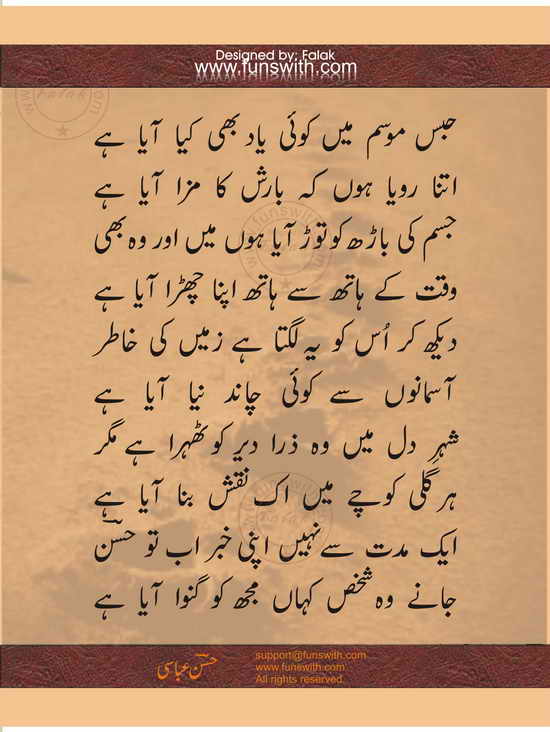 Designed by: Falak
www.funswith.com
Falak
حبس موسم میں کوئی یاد بھی کیا آیا ہے
اتنا رویا ہوں کہ بارش کا مزا آیا ہے
جسم کی باڑھ کو توڑ آیا ہوں میں اور وہ بھی
وقت کے ہاتھ سے ہاتھ اپنا چھڑا آیا ہے
دیکھ کر اُس کو یہ لگتا ہے زمیں کی خاطر
آسمانوں سے کوئی چاند نیا آیا ہے
شہرِ دل میں وہ ذرا دیر کو ٹھہرا ہے مگر
ہر گلی کوچے میں اک نقش بنا آیا ہے
ایک مدت سے نہیں اپنی خبر اب تو حسنؔ
جانے وہ شخص کہاں مجھ کو گنوا آیا ہے
حسنؔ عباسی
support@funswith.com
www.funswith.com
All rights reserved.